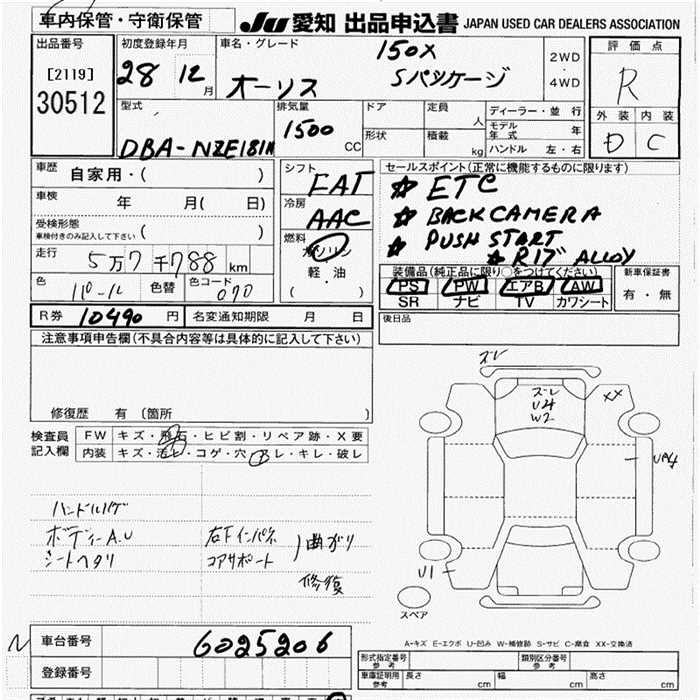 車内保管・守衛保管
JU 愛知 出品申込書 JAPAN USED CAR DEALERS ASSOCIATION
出品番号
[2119]
30512
初度登録年月
28 12月
車名・グレード
オーリス 150X
Sパッケージ
2WD
・
4WD
評価点
R
外装 内装
D C
型式
DBA-NZE181H
排気量
1500 CC
ドア
形状
定員 人
積載 kg
ディーラー・並行
モデル年式 年
ハンドル 左・右
車歴 自家用・( )
車検 年 月( 日)
受検形態
車検付きのみ記入して下さい ( )
走行 5万7千788 km
色 パール 色替 色コード 070
シフト FAT
冷房 AAC
燃料 ガソリン
軽・油
( ・ )
セールスポイント(正常に機能するものに限ります)
☆ ETC
☆ BACK CAMERA
☆ PUSH START
☆ R17 ALLOY
装備品(純正品に限り○をつけてください)
PS PW エアB AW
SR ナビ TV カワシート
新車保証書
有・無
R券 10490 円 名変通知期限 月 日
後日品
注意事項申告欄(不具合内容等は具体的に記入して下さい)
修復歴 有 (箇所 )
検査員記入欄
FW キズ・飛石・ヒビ割・リペア跡・X要
内装 キズ・汚レ・コゲ・穴・スレ・キレ・破レ
ハンドルハゲ
ボディーA.U
シートヘタリ
右下インパネ
コアサポート
曲がり
修復
ズレ
ズレ
U4
W2
XX
U1
スペア
A-キズ E-エクボ U-凹み W-補修跡 S-サビ C-腐食 XX-交換済
車台番号 6025206
登録番号
形式指定番号 参考
類別区分番号 参考
車庫証明用 参考 長さ cm 幅 cm 高さ cm